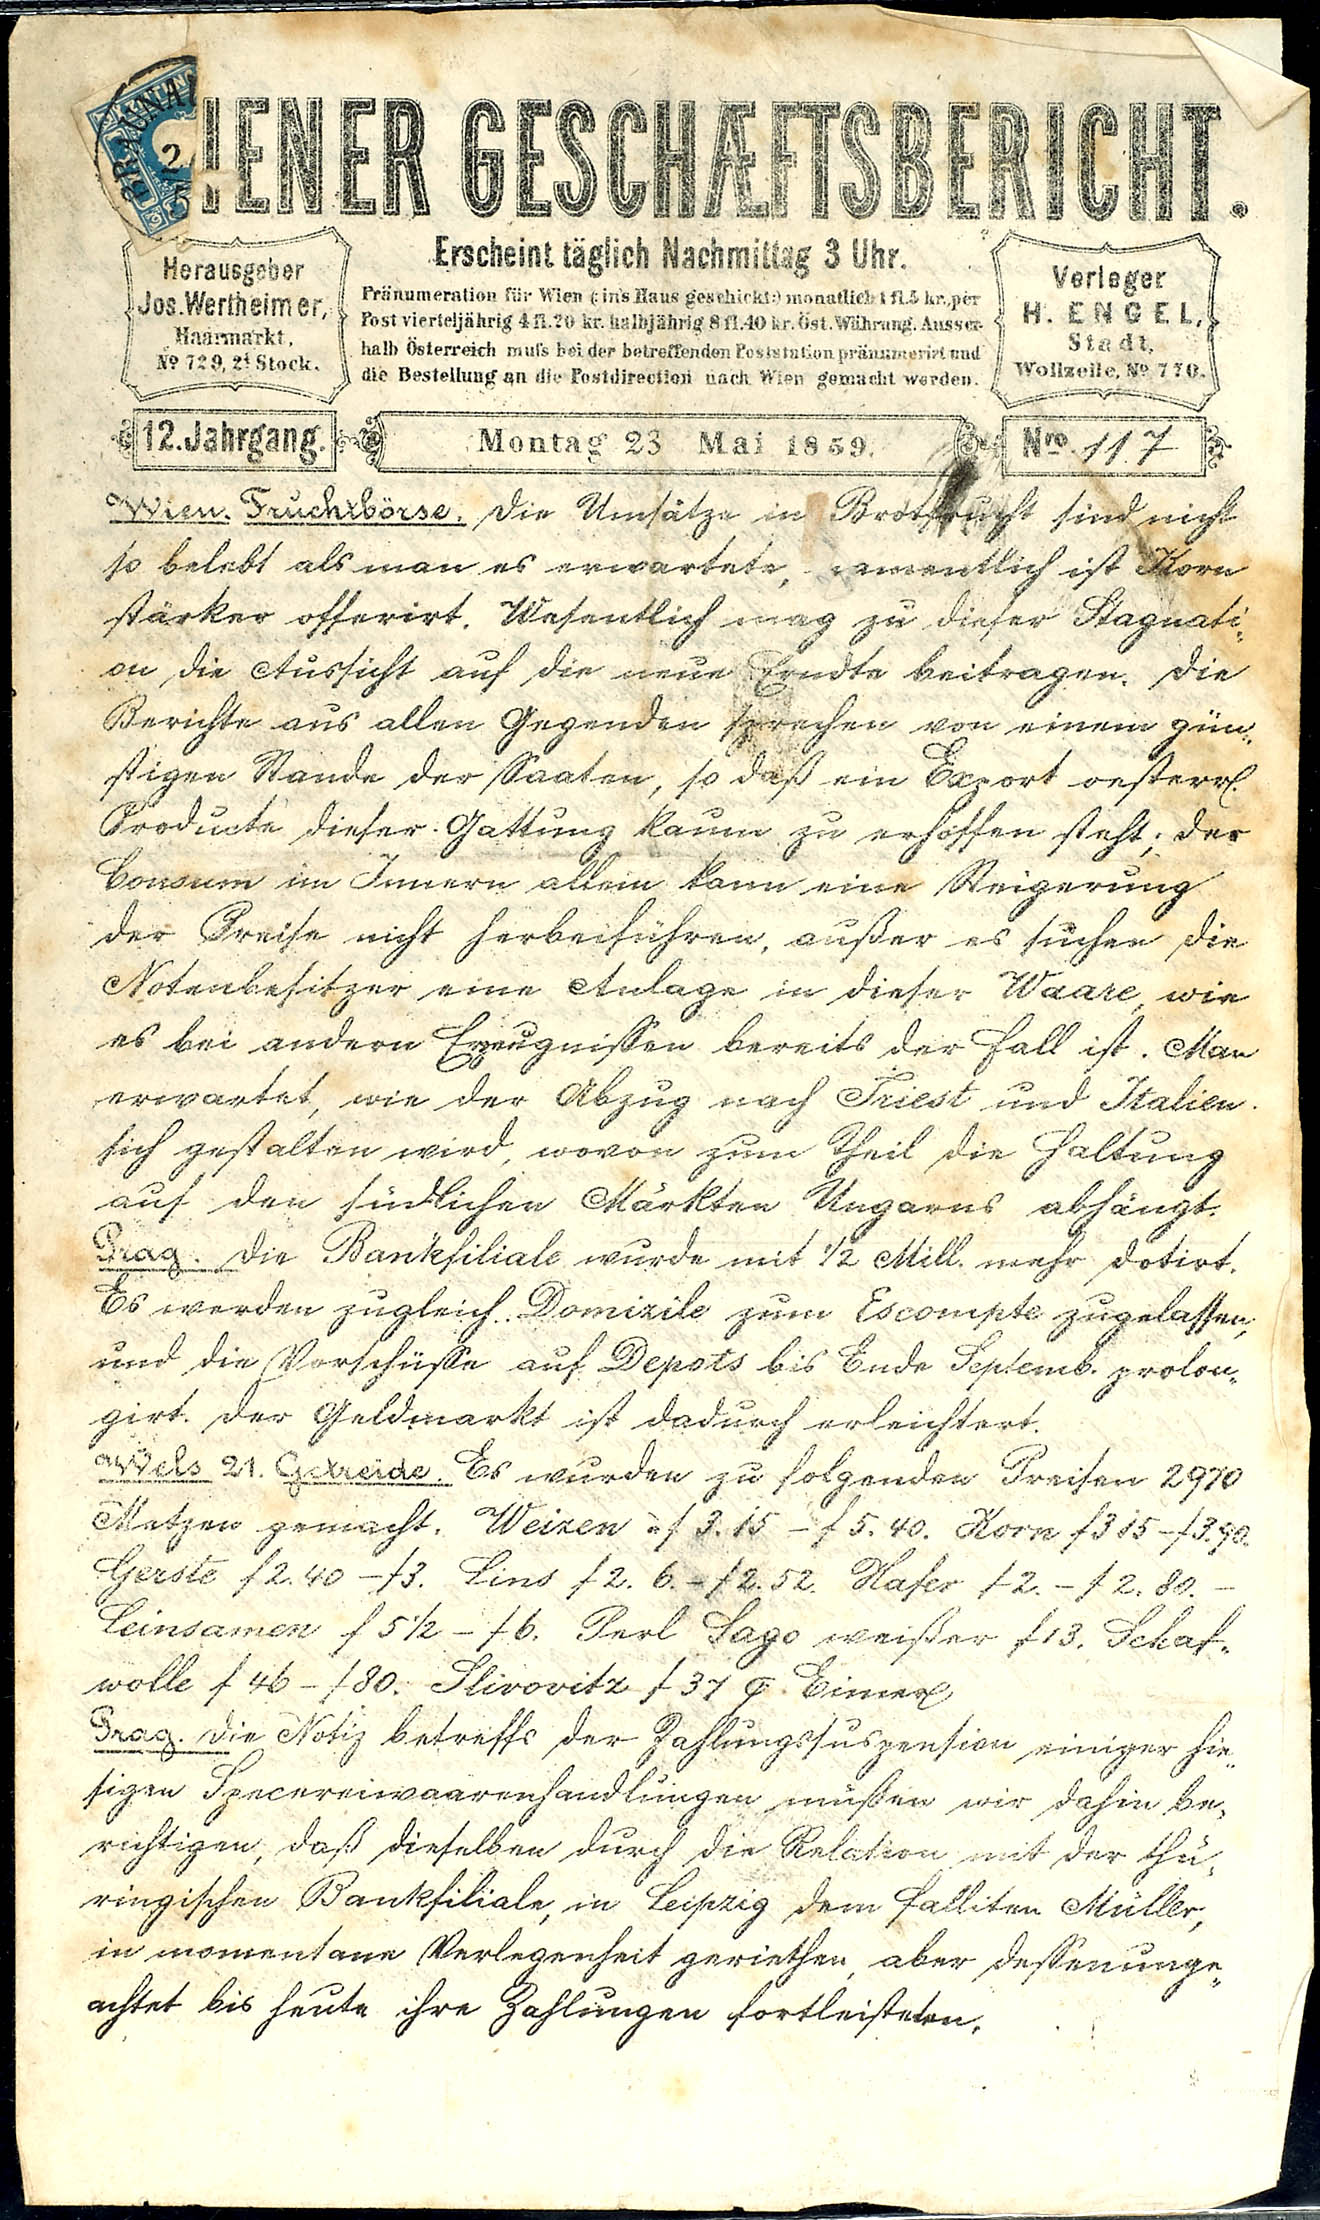 IENER GESCHÆFTSBERICHT.
Erscheint täglich Nachmittag 3 Uhr.
Herausgeber
Jos. Wertheimer,
Haarmarkt,
No 729, 2t Stock.
Pränumeration für Wien (:ins Haus geschickt:) monatlich 1 fl. 5 kr., per
Post vierteljährig 4 fl. 20 kr. halbjährig 8 fl. 40 kr. Öst. Währung. Ausser-
halb Österreich muſs bei der betreffenden Poststation pränumerirt und
die Bestellung an die Postdirection nach Wien gemacht werden.
Verleger
H. ENGEL,
Stadt,
Wollzeile, No 770.
12. Jahrgang.
Montag 23 Mai 1859.
Nro. 117
Wien. Fruchtbörse. Die Umsätze in Brotfrucht sind nicht
so belebt als man es erwartete, namentlich ist Korn
stärker offerirt. Wesentlich mag zu dieser Stagnati-
on die Aussicht auf die neue Erndte beitragen. Die
Berichte aus allen Gegenden sprechen von einem gün-
stigen Stande der Saaten, so daß ein Export oesterr.
Producte dieser Gattung kaum zu erhoffen steht; der
Consum im Innern allein kann eine Steigerung
der Preise nicht herbeiführen, außer es suchen die
Notenbesitzer eine Anlage in dieser Waare, wie
es bei andern Erzeugnissen bereits der Fall ist. Man
erwartet, wie der Abzug nach Triest und Italien
sich gestalten wird, wovon zum Theil die Haltung
auf den südlichen Märkten Ungarns abhängt.
Prag. Die Bankfiliale wurde mit 1/2 Mill. mehr dotirt.
Es werden zugleich Domizile zum Escompte zugelassen,
und die Vorschüsse auf Depots bis Ende Septemb. prolon-
girt. Der Geldmarkt ist dadurch erleichtert.
Wels 21. Getreide. Es wurden zu folgenden Preisen 2970
Metzen gemacht. Weizen à f 3.15 - f 5.40. Korn f 3 15 - f 3.90.
Gerste f 2.40 - f 3. Lins f 2. 6. - f 2.52. Hafer f 2. - f 2.80. -
Leinsamen f 5 1/2 - f 6. Perl Sago weißer f 13. Schaf-
wolle f 46 - f 80. Slivovitz f 37 Eimer
Prag. Die Notiz betreffs der Zahlungssuspension einiger hie-
sigen Specereiwaarenhandlungen müßen wir dahin be-
richtigen, daß dieselben durch die Relation mit der thü-
ringischen Bankfiliale, in Leipzig dem falliten Müller,
in momentane Verlegenheit geriethen, aber dessenunge-
achtet bis heute ihre Zahlungen fortleisteten.